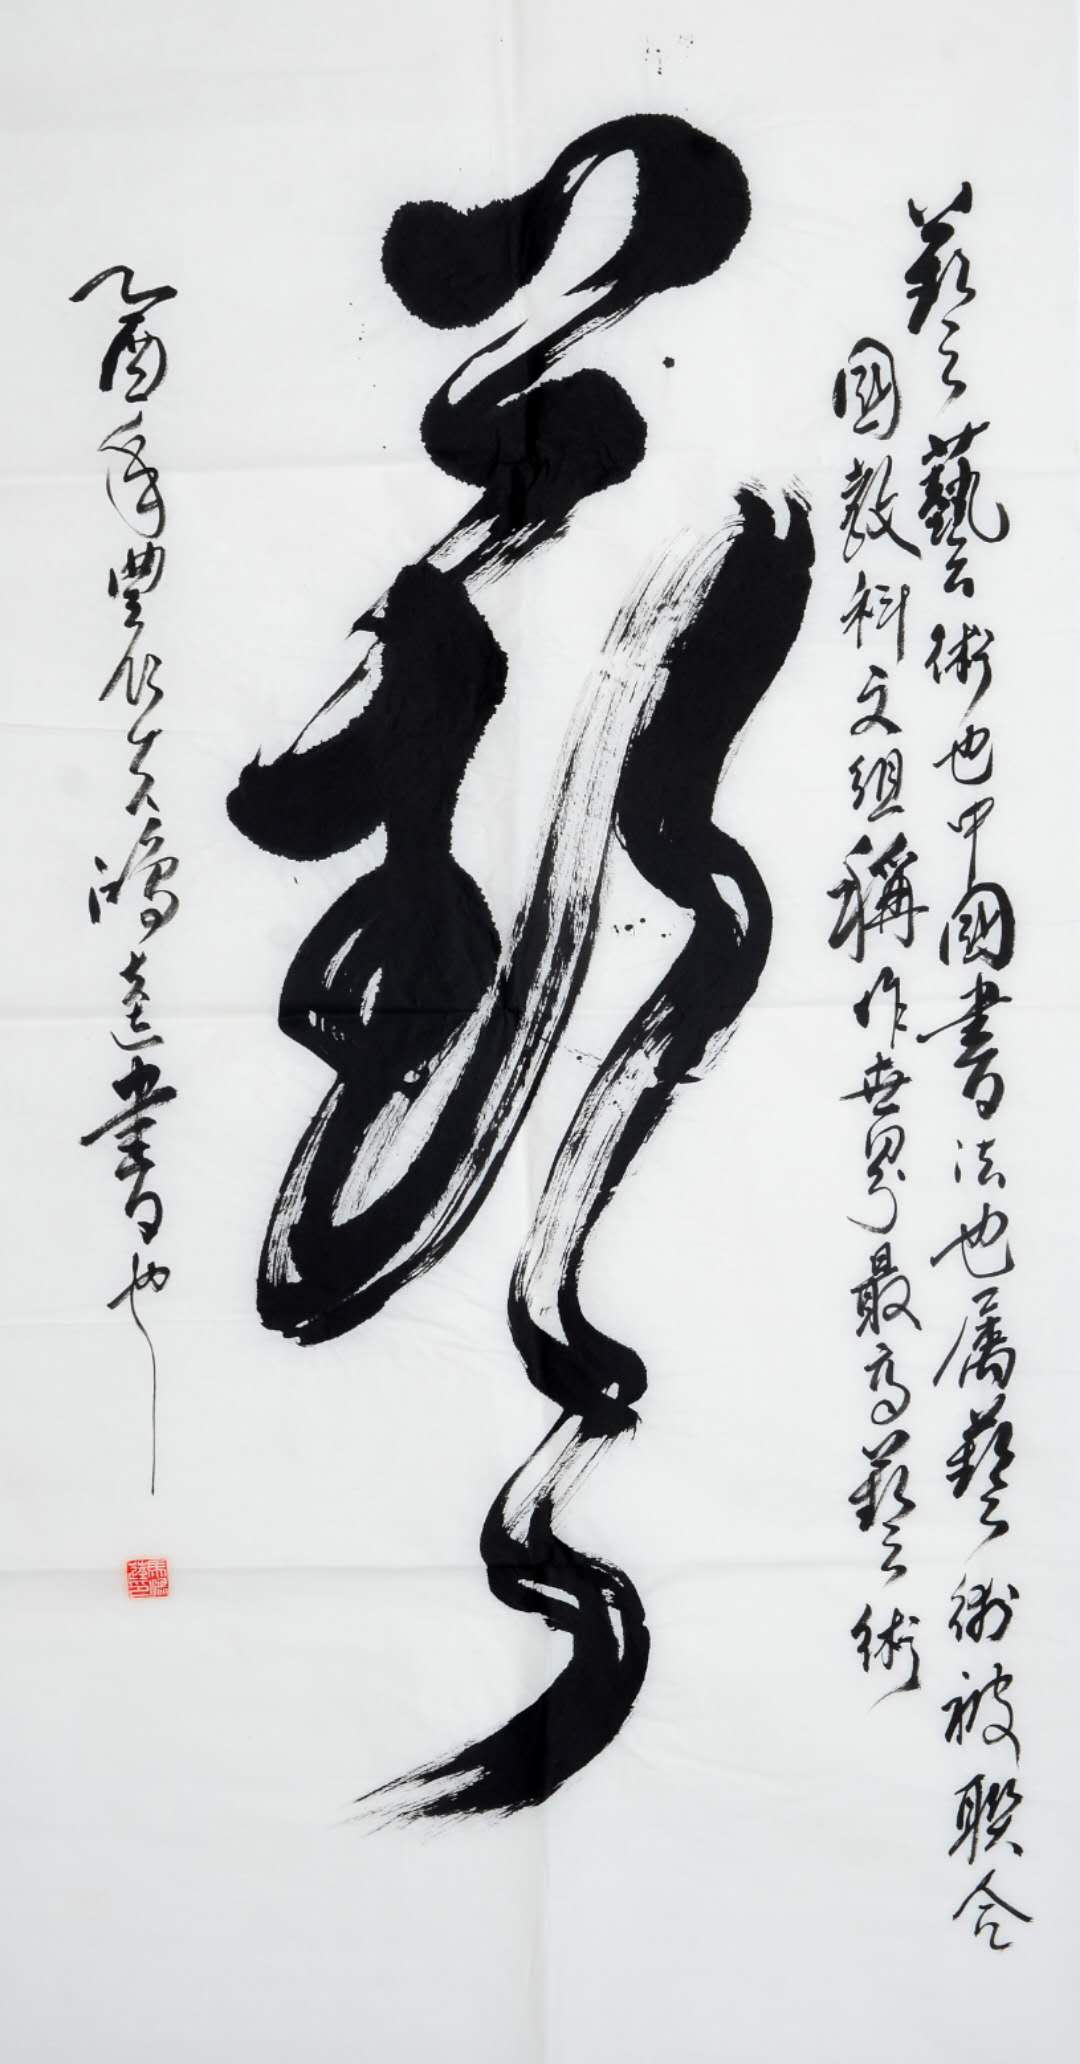 藝藝術也中國書法也屬藝術被聯合
國教科文組稱作世界最高藝術
藝
乙酉年豐作吉鴻達書也